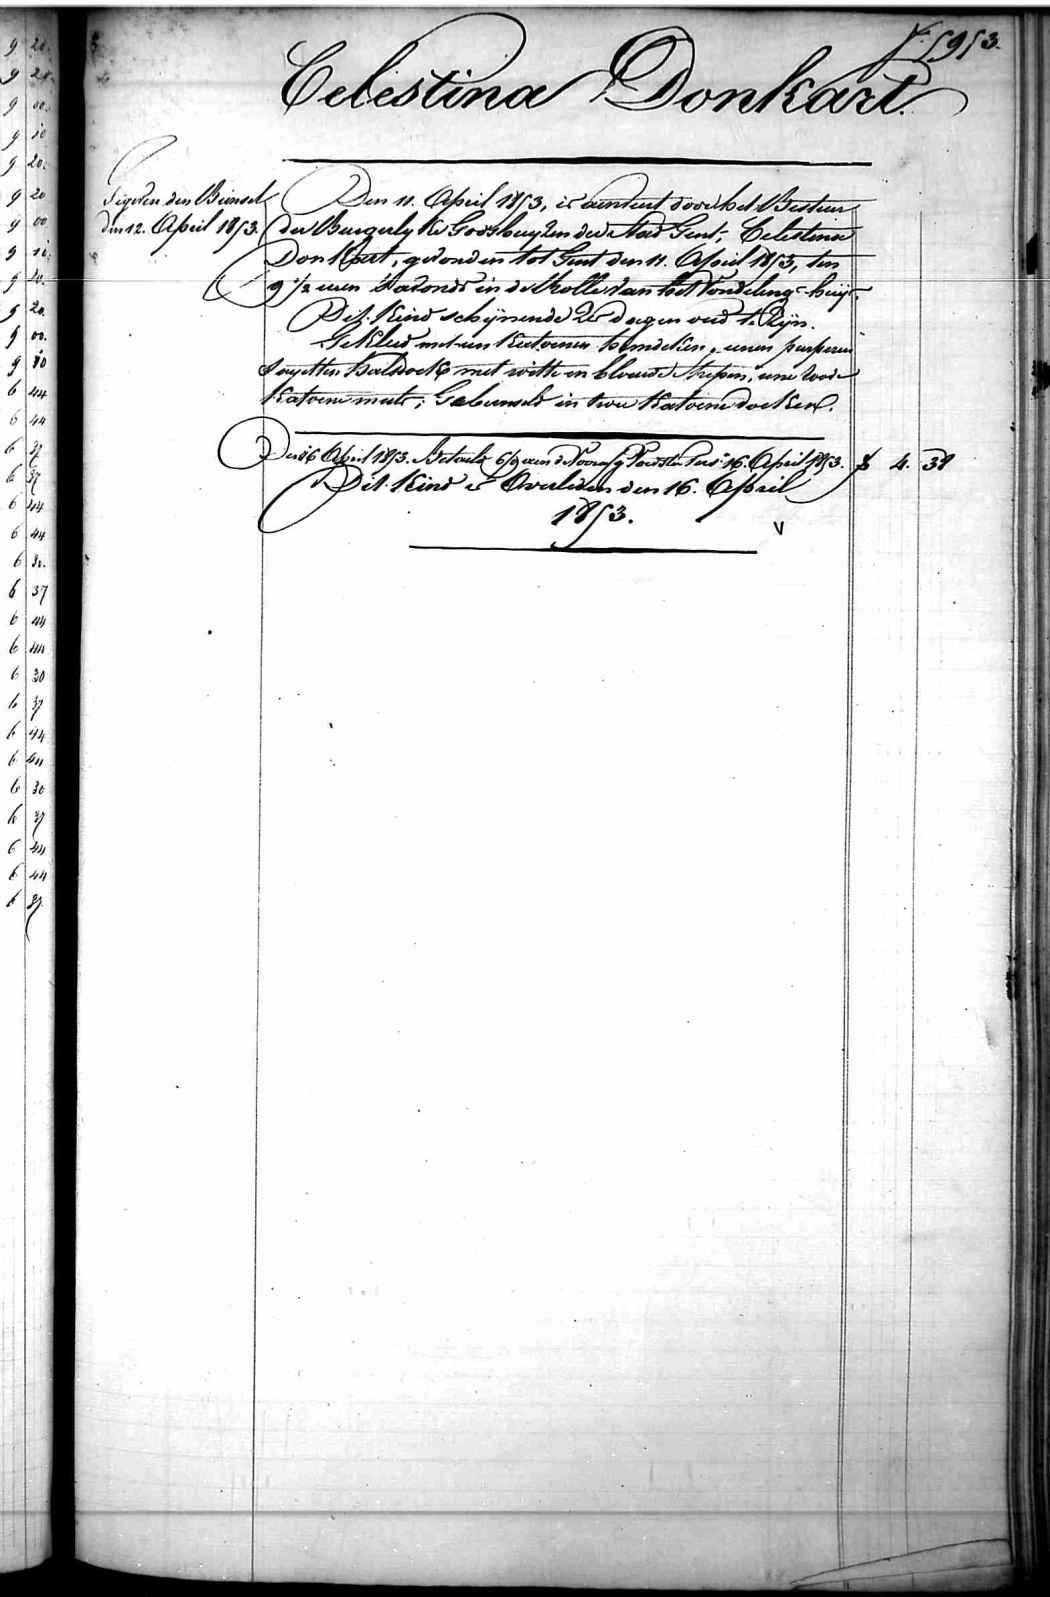 f. 5953.
Celestina Donkart.
Gegeven den Bunsel
den 12. April 1853.
Den 11. April 1853, is aenveert door het Bestuer
der Burgerlyke Godshuyzen der Stad Gent, Celestina
Donkart, gevonden tot Gent den 11. April 1853, ten
9 1/2 uren s'avonds in de rolle van het Vondelinghuys.
Dit Kind schynende 2 dagen oud te Zyn.
Gekleed met een Katoenen hemdeken, eenen purperen
halsdoek met witte en blauwe strepen, eene roode
Katoene muts; Gebunseld in twee Katoene doeken.
Den 16 April 1853. Betaeld 6/9 aen de Voorsz Voedster Pers: 16. April 1853. f 4. 38
Dit Kind is Overleden den 16. April
1853.
9 20.
9 20
9 00.
9 10
9 20.
9 20
9 00
9 10
9 20.
9 20.
9 00.
9 10
6 44
6 44
6 37
6 37
6 44
6 44
6 30.
6 37
6 44
6 44
6 30
6 37
6 44
6 44
6 30
6 37
6 44
6 44
6 37